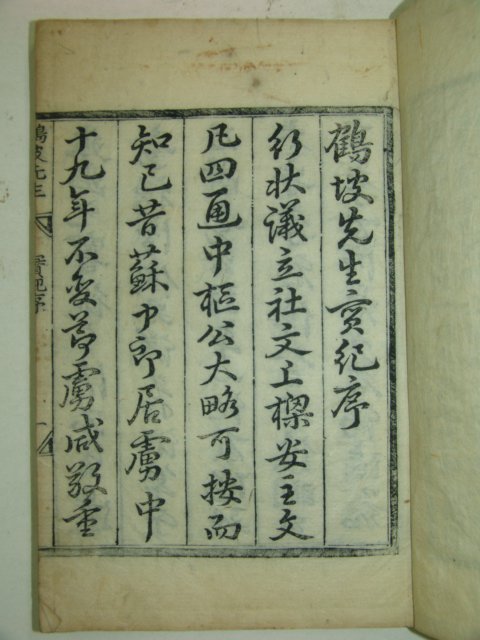 鶴坡先生實紀序
行狀議立社文上樑安主文
凡四通中樞公大略可按而
知已昔蘇中郎居虜中
十九年不變節虜咸敬重
鶴坡先生 實紀序 一